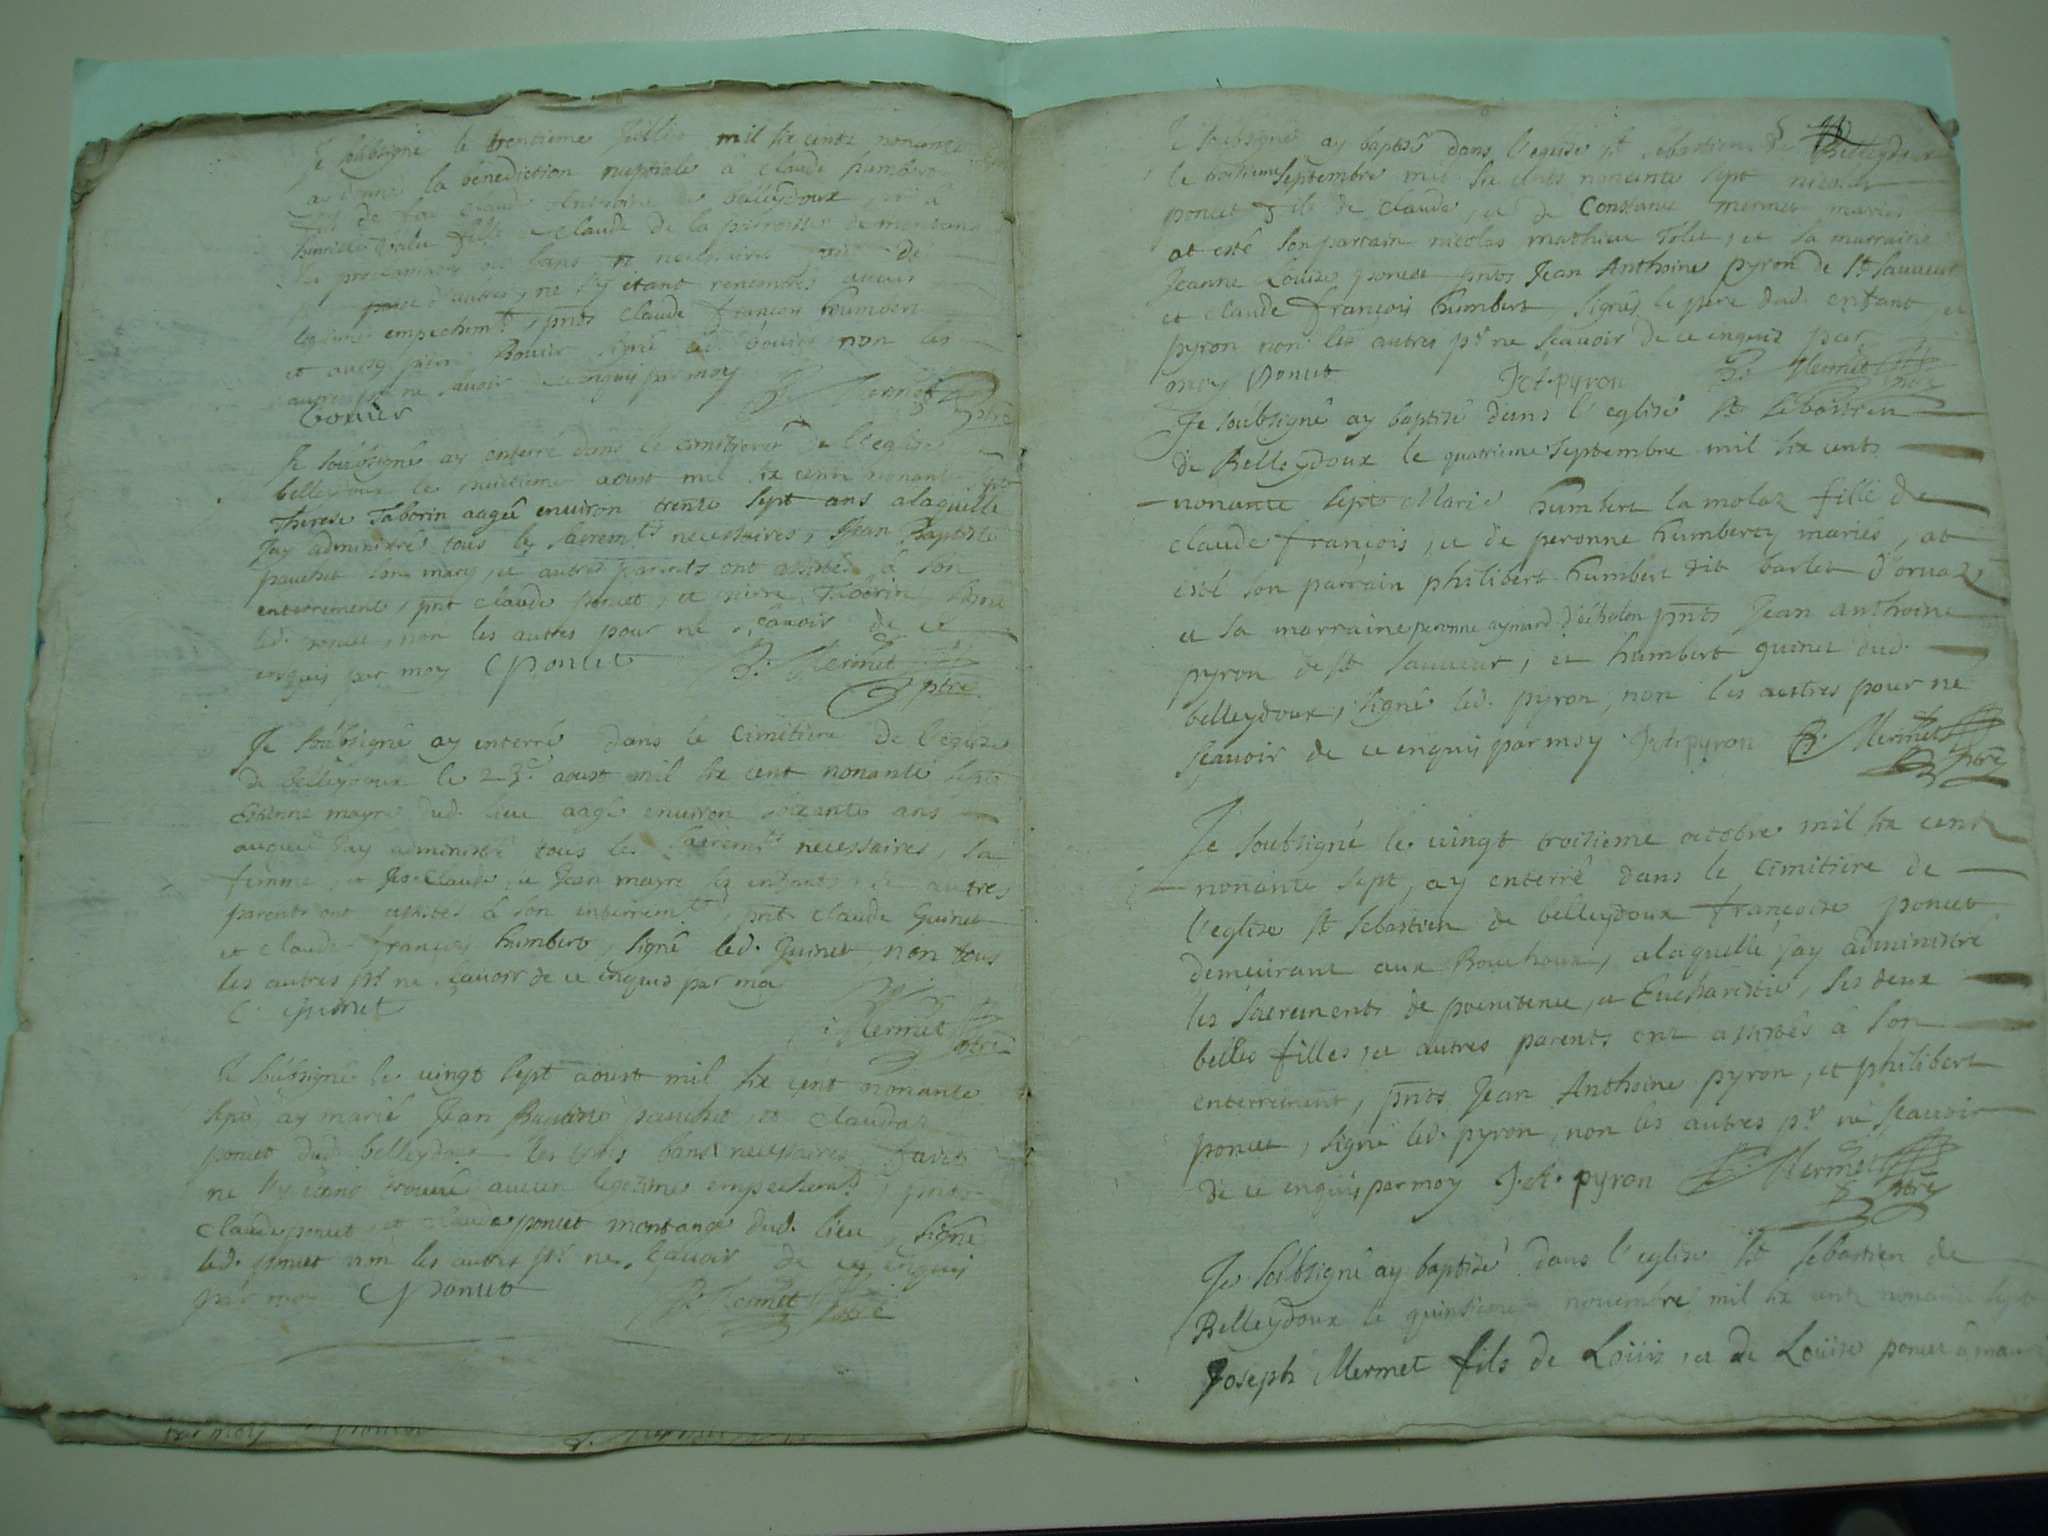 Je soubsigné le trentieme Juillet mil six cents nonante
ay donné la bénédiction nuptiale â Claude humbert
fils de feu Claude Anthoine de belleydoux, et â
fille de Claude de la parroisse de
les proclamations de bans
d'autre, ne s'y étant rencontré aucun
legitime empechemt, pnts Claude françois humbert
et aussy pierre Bouvier signé led. bouvier non les
autres pr ne scavoir de ce enquis par moy
Bouvier B. Mermet ptre
Je soubsigné ay enterré dans le cimitiere de l'eglise
belleydoux le huitieme aoust mil six cents nonante sept
Therese Taborin aagée environ trente sept ans alaquelle
Jay administré tous les Sacremts necessaires, Jean Baptiste
pauchet son mary, et autres parents ont assistés â son
enterrement, pnt Claude poncet, et pierre Taborin, signé
led. poncet, non les autres pour ne scavoir de ce
enquis par moy C poncet B. Mermet
ptre
Je soubsigné ay enterré dans le Cimitiere de l'eglise
de belleydoux le 23e aoust mil six cent nonante sept
Estienne mayre dud. lieu aagé environ soixante ans
auquel Jay administré tous les Sacremts necessaires, sa
femme, et Claude, et Jean mayre ses enfants, et autres
parents ont assistés â son enterremt, pnt Claude Guinet
et claude françois humbert, signé led. Guinet non tous
les autres pr ne scavoir de ce enquis par moy
C. guinet
B. Mermet ptre
Je soubsigné le vingt sept aoust mil six cent nonante
sept ay marié Jean Baptiste pauchet, et Claudaz
poncet dud. belleydoux les trois bans necessaires faits
ne s'y etant trouvé aucun legitime empechemt, pnts
Claude poncet, et claude poncet montange dud. lieu, signé
led. poncet non les autres pr ne scavoir de ce enquis
par moy C poncet B. Mermet ptre
Je soubsigné ay baptisé dans l'eglise st sebastien de Belleydoux
le troisieme Septembre mil six cents nonante sept nicolas
poncet fils de claude, et de Constance mermet mariés
at esté son parrain nicolas mathieu et sa marraine
Jeanne Louise poncet pnts Jean Anthoine pyron de st sauveur
et claude françois humbert, signés le père dud. enfant, et
pyron non les autres pr ne scavoir de ce enquis par
moy Poncet J.A. pyron B. Mermet ptre
Je soubsigné ay baptisé dans l'eglise st sebastien
de Belleydoux le quatrieme Septembre mil six cents
nonante sept Marie humbert la molaz fille de
claude françois, et de peronne humberty mariés, at
esté son parrain philibert humbert dit barlet d'orvaz
et sa marraine peronne aymard d'échalon pnts Jean anthoine
pyron de st sauveur, et humbert guinet dud.
belleydoux, signé led. pyron, non les autres pour ne
scavoir de ce enquis par moy J.A. pyron B. Mermet
ptre
Je soubsigné le vingt troisieme octobre mil six cent
nonante sept, ay enterré dans le cimitiere de
l'eglise st sebastien de belleydoux françoise poncet
demeurant aux Bouchoux, alaquelle jay administré
les sacrements de poenitence, et Eucharistie, ses deux
belles filles, et autres parents ont assistés â son
enterrement, pnts Jean Anthoine pyron, et philibert
poncet, signé led. pyron, non les autres pr ne scavoir
de ce enquis par moy J.A. pyron B. Mermet
ptre
Je soubsigné ay baptisé dans l'eglise st sebastien de
Belleydoux le quinsieme novembre mil six cents nonante sept
Joseph Mermet fils de Loüis, et de Loüise poncet